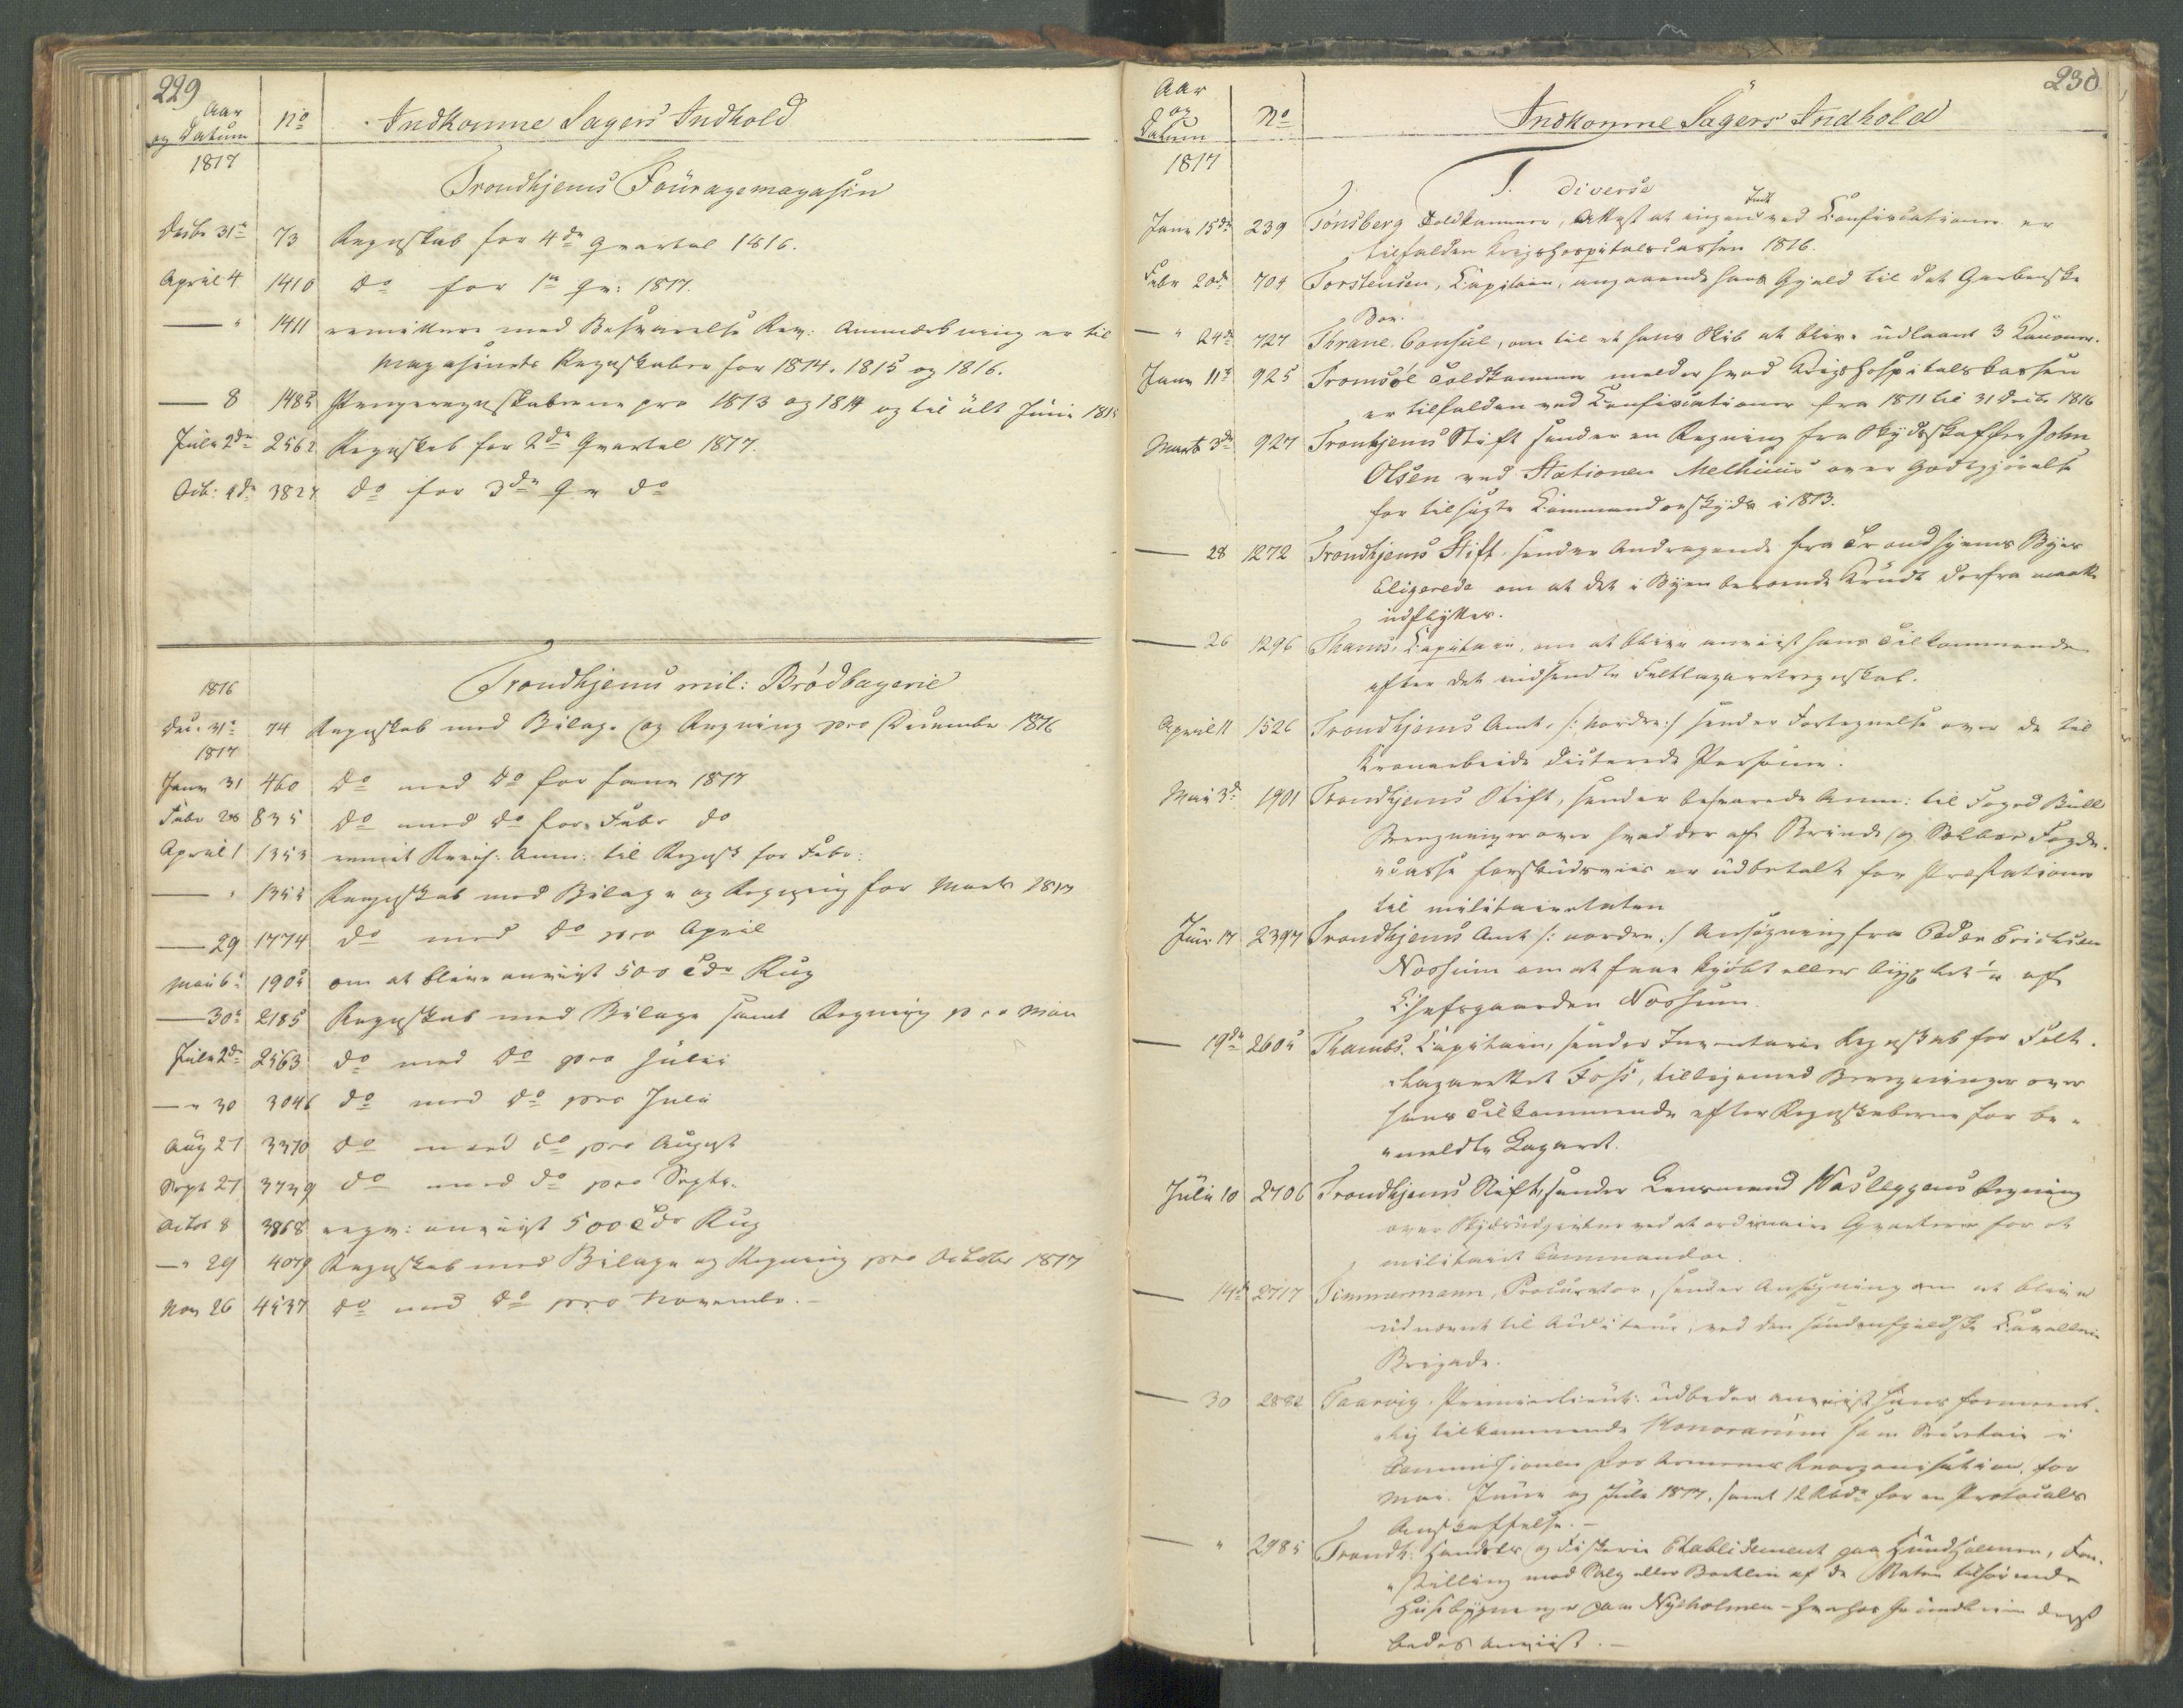 229
Aar
og Datum
No
Indkomne Sagers Indhold
1817
Trondhjems Fouragemagasin
Decbr 31te 73 Regnskab for 4de Qvartal 1816.
April 4 1410 do for 1ste Qv: 1817.
— " 1411 remittere med Besvarelse Rev: Anmærkninger til
Magasinets Regnskaber for 1814. 1815 og 1816.
— 8 1482 Pengeregnskaberne pro 1813 og 1814 og til ult Junii 1815
Julii 2den 2562 Regnskab for 2det Qvartal 1817.
Octb: 4de 3827 do for 3die Qv do
1816
Trondhjems mil: Brødbagerie
Dec. 31te 74 Regnskab med Bilage og Regning pro December 1816
1817
Janr 31 460 do med do for Janr 1817
Febr 28 835 do med do for Febr do
April 1 1353 remit Revis: Anm: til Regnsk for Febr:
— " 1354 Regnskab med Bilage og Regning for Marts 1817
— 29 1774 do med do pro April
Maii 6te 1902 om at blive anviist 500 Tdr Rug
— 30te 2185 Regnskab med Bilage samt Regning pro Maii
Julii 2den 2563 do med do pro Junii
— " 30 3046 do med do pro Julii
Aug 27 3370 do med do pro August
Sept 27 3739 do med do pro Septr.
Octbr 8 3868 anviist 500 Tdr Rug
— " 29 4079 Regnskab med Bilage og Regning pro October 1817
Nov 26 4537 do med do pro Novembr. —
230
Aar
og
Datum
No
Indkomne Sagers Indhold
1817
T. diverse
Janr 15de 239 Tønsberg Toldkammer, Attest at ingen Indt ved Confiscationer er
tilfalden Krigshospitalscassen 1816.
Febr 20de 704 Torstensen, Capitain, angaaende hans Gjæld til det Garbenske
Boe.
— " 24de 727 Thrane. Consul, om til et hans Skib at blive udlaant 3 Kanoner.
Janr 11te 925 Tromsøe Toldkammer melder hvad Krigshospitalskassen
er tilfalden ved Confiscationer fra 1811 til 31 Decbr 1816
Marts 3die 927 Tronhjems Stift sender en Regning fra Skydsskaffer John
Olsen ved Stationen Melhuus over Godtgjørelse
for tilsagte Commandoeskyds i 1813.
— 28 1272 Trondhjems Stift, sender Andragende fra Trondhjems Byes
Eligerede om at det i Byen beroende Krudt derfra maatte
udflyttes.
— 26 1296 Thams, Capitain, om at blive anviist hans Tilkommende
efter det indsendte Feltlazaretregnskab.
April 11 1526 Trondhjems Amt /: nordre :/ sender Fortegnelse over de til
Kronarbeide dicterede Personer.
Maii 3die 1901 Trondhjems Stift, sender besvarede Anm: til Foged Bull
Beregninger over hvad der af Strinde og Selboe Fogde-
"casse forskudsviis er udbetalt for Præstationer
til militairetaten
Junii 17 2397 Trondhjems Amt /: nordre :/ Ansøgning fra Peder Erichsen
Nossum om at faae kjøbt eller bygslet en af
Chefsgaarden Nossum.
— 19de 2604 Thambs. Capitain, sender Inventarie Regnskab for Felt-
"Lazarettet Foss, tilligemed Beregninger over
hans Tilkommende efter Regnskaberne for be-
"meldte Lazaret.
Julii 10 2706 Trondhjems Stift, sender Lensmand Wasleggens Regning
over Skydsudgivter ved at ordinaire Qvarterer for et
militairt Commandoe.
— 14de 2717 Timmermann, Procurator, sender Ansøgning om at blive
udnævnt til Auditeur, ved den søndenfjeldske Cavallerie
Brigade.
— 30 2882 Taarvig. Premierlieut: udbeder anviist hans forment-
"lig tilkommende Honorarium som Secretair i
Commissionen for Armeens Reorganisation, for
Maii. Junii og Julii 1817, samt 12 Rbdr for en Protocolls
Anskaffelse. —
— " 2985 Trondh: Handels og Fiskerie Etablissement paa Hundholmen, Fore-
"stilling mod Salg eller Bortleie af de Staten tilhørende
Huusbygninger paa Nyeholmen -
bedes anviist. —